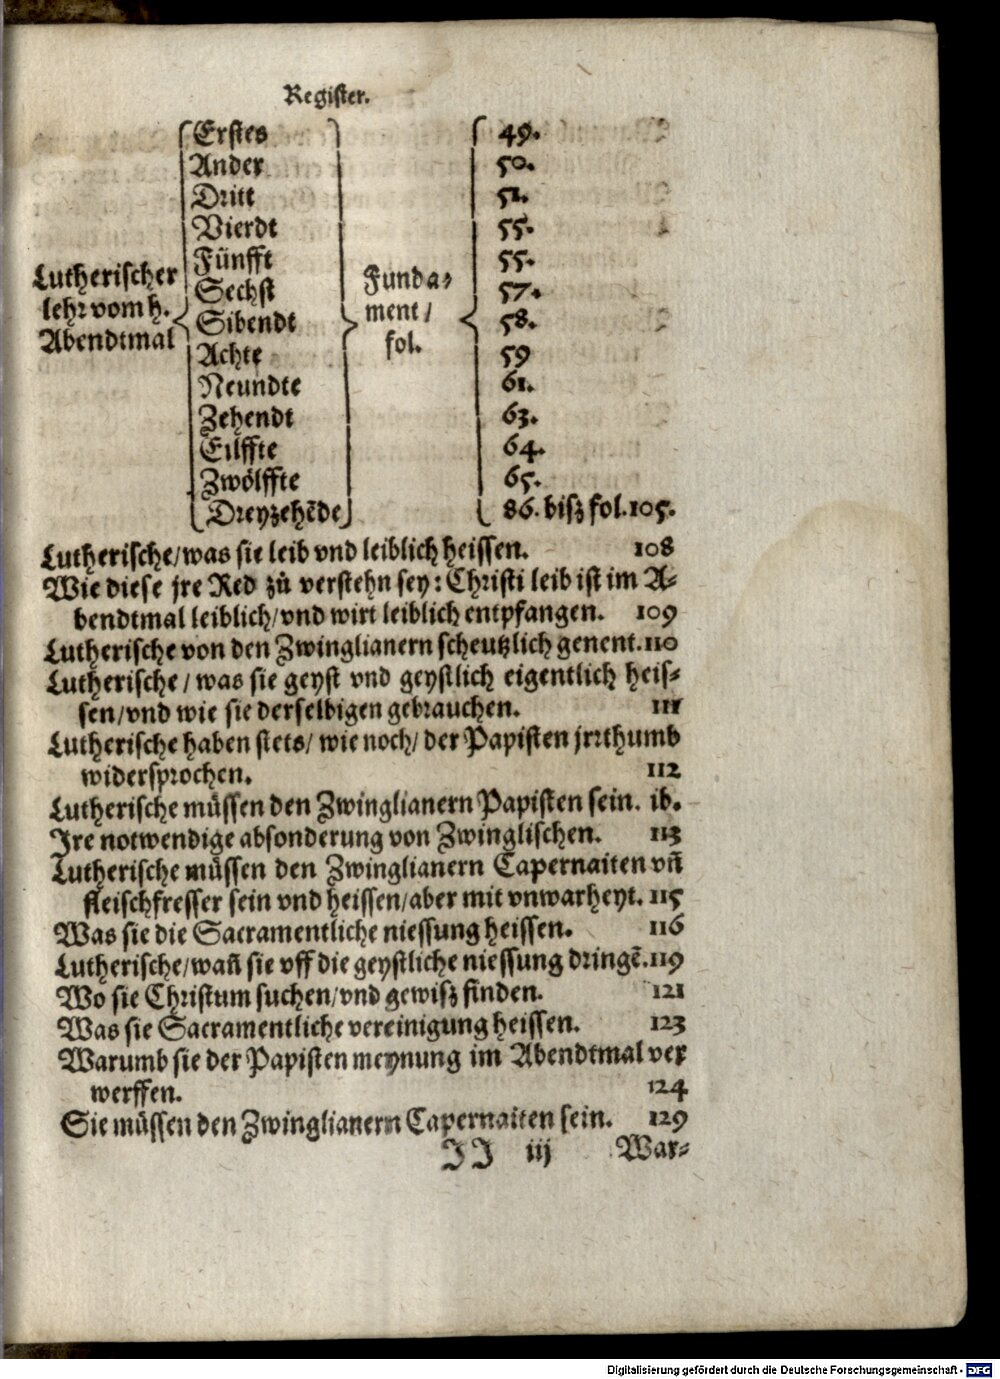 Register.
Erstes 49.
Ander 50.
Dritt 51.
Vierdt 55.
Fünfft 55.
Lutherischer Sechst Funda⸗ 57.
lehr vom h. Sibendt ment/ 58.
Abendtmal Achte fol. 59
Neundte 61.
Zehendt 63.
Eilffte 64.
Zwölffte 65.
Dreyzehẽde 86. bisz fol. 105.
Lutherische/was sie leib vnd leiblich heissen. 108
Wie diese jre Red zů verstehn sey: Christi leib ist im A⸗
bendtmal leiblich/vnd wirt leiblich entpfangen. 109
Lutherische von den Zwinglianern scheutzlich genent. 110
Lutherische/was sie geyst vnd geystlich eigentlich heis⸗
sen/vnd wie sie derselbigen gebrauchen. 111
Lutherische haben stets/ wie noch/ der Papisten jrrthumb
widersprochen. 112
Lutherische müssen den Zwinglianern Papisten sein. ib.
Ire notwendige absonderung von Zwinglischen. 113
Lutherische müssen den Zwinglianern Capernaiten vñ
fleischfresser sein vnd heissen/aber mit vnwarheyt. 115
Was sie die Sacramentliche niessung heissen. 116
Lutherische/wañ sie vff die geystliche niessung dringẽ. 119
Wo sie Christum suchen/vnd gewisz finden. 121
Was sie Sacramentliche vereinigung heissen. 123
Warumb sie der Papisten meynung im Abendtmal ver
werffen. 124
Sie müssen den Zwinglianern Capernaiten sein. 129
II iij War⸗
Digitalisierung gefördert durch die Deutsche Forschungsgemeinschaft - DFG